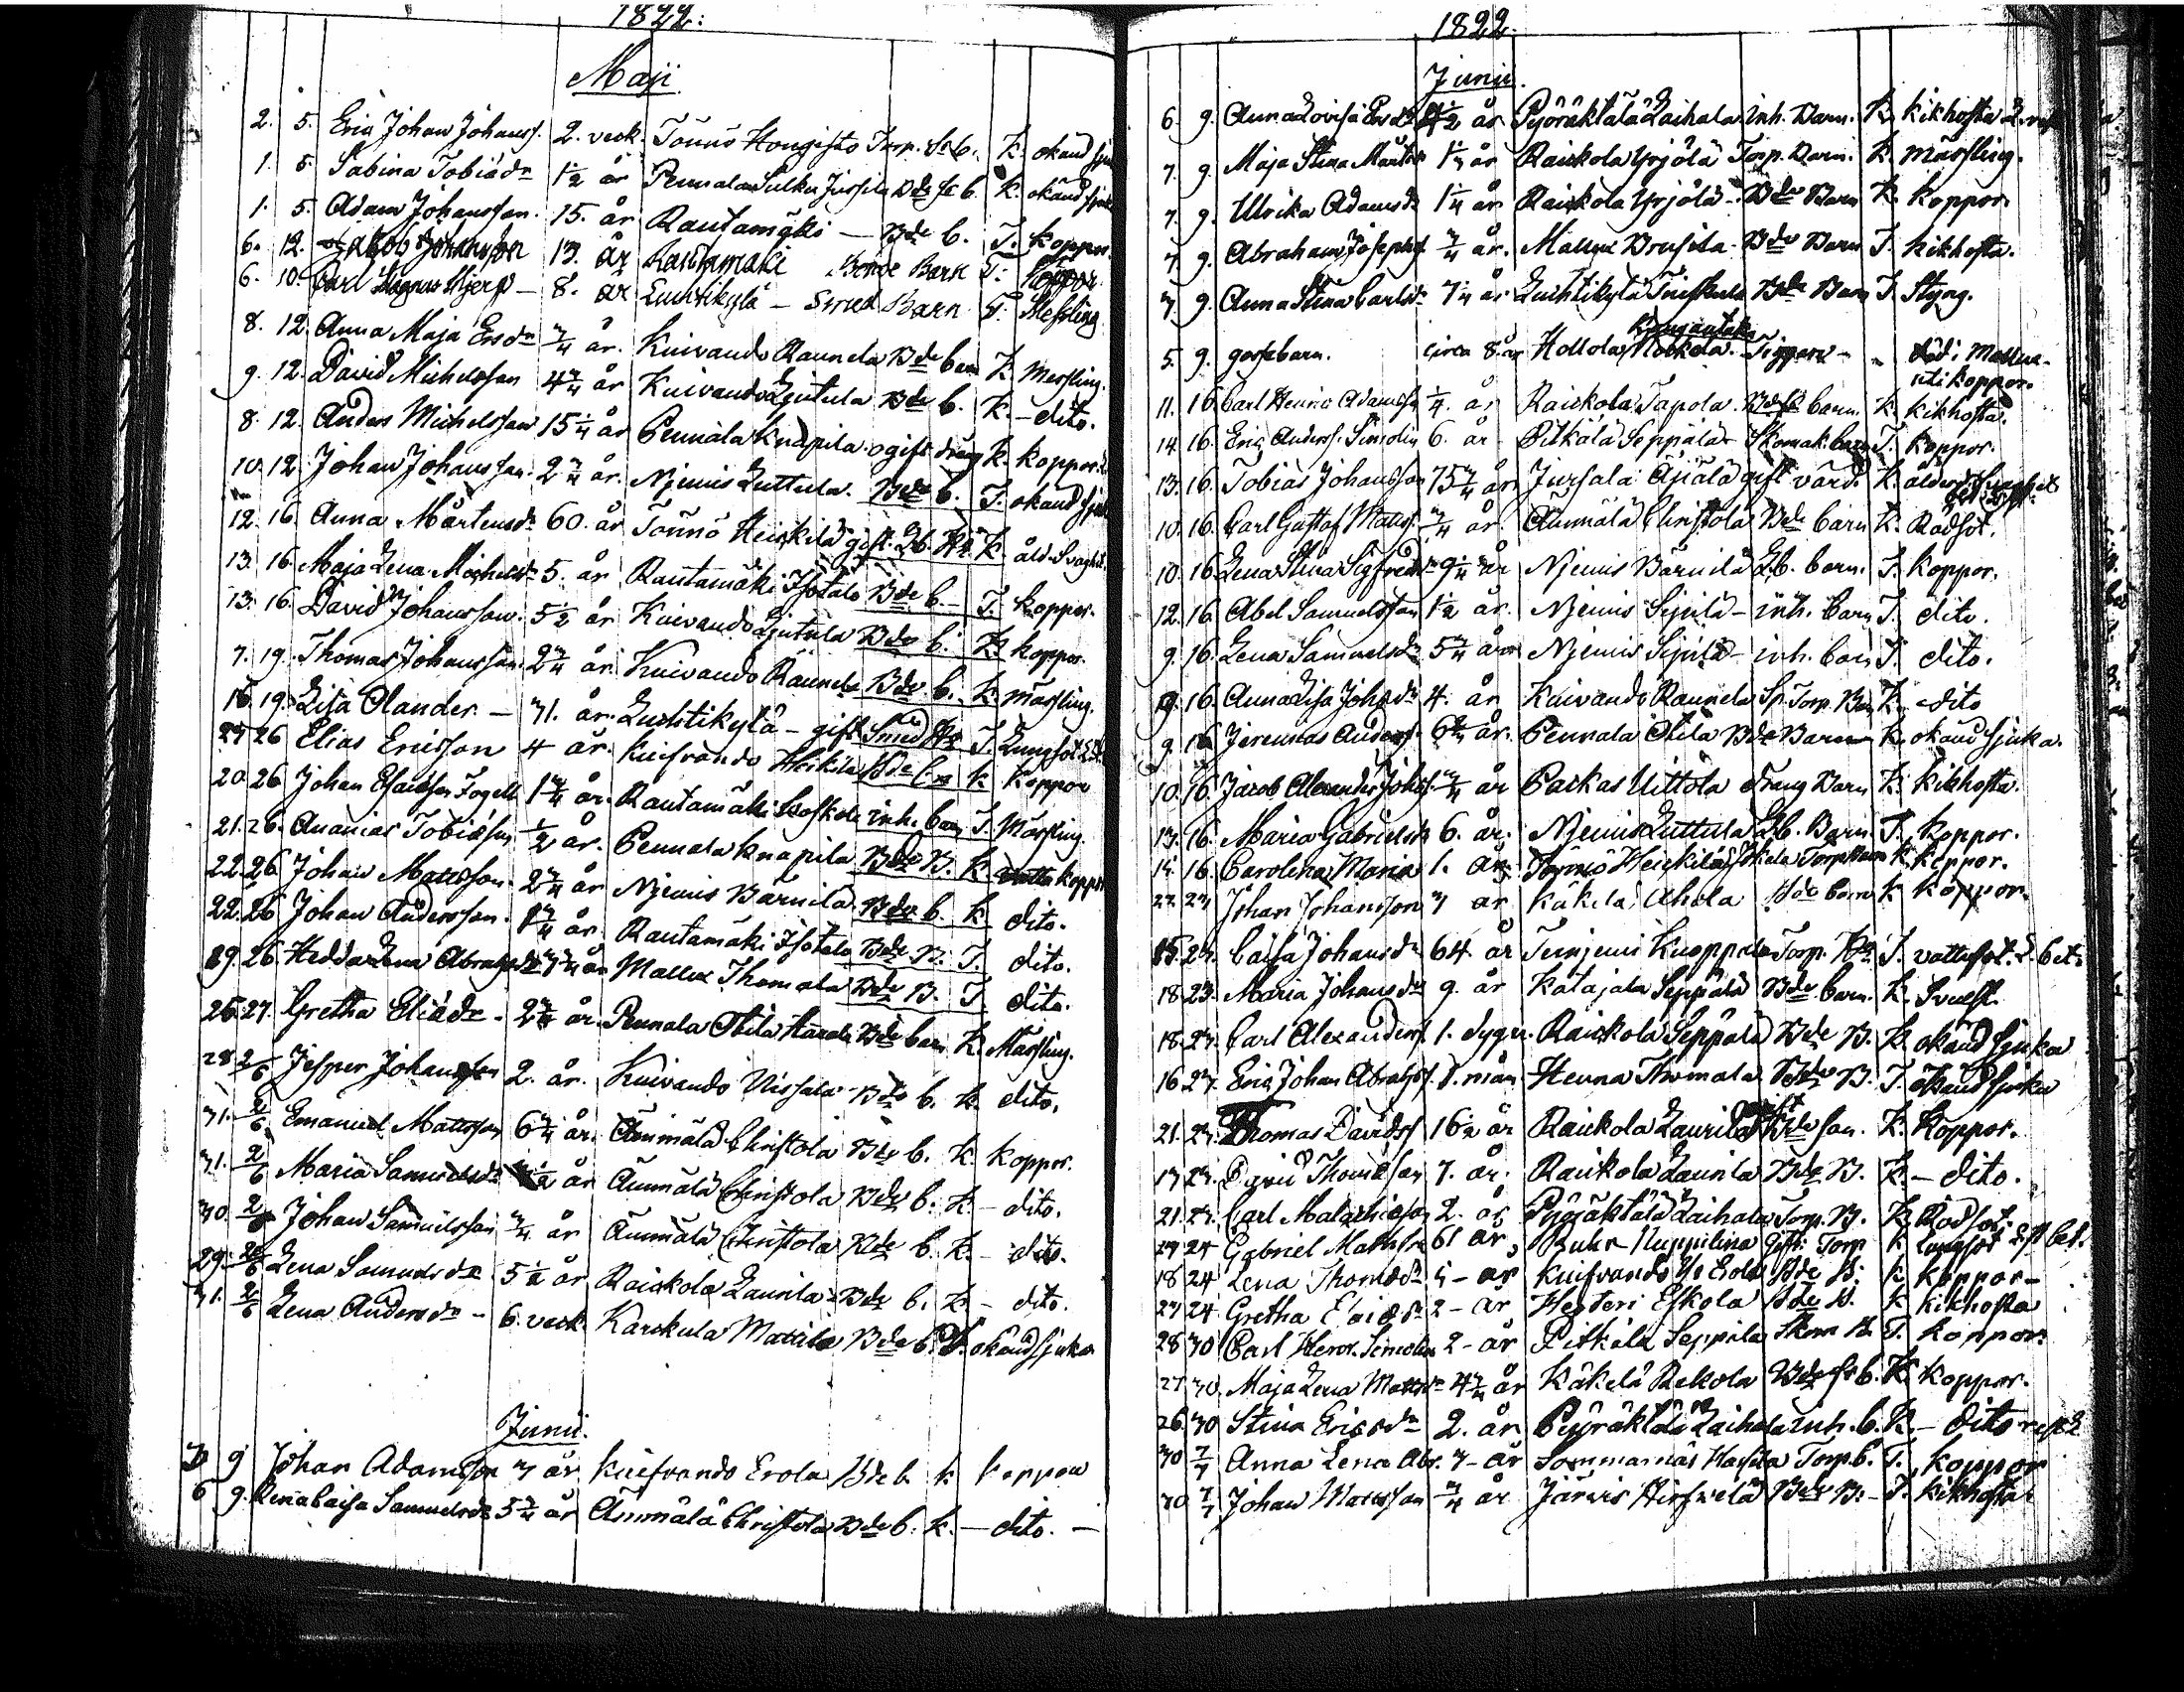 1822:
Maji
2. 5. Eric Johan Johanss. 2. veck. Tönnö Hongisto Torp. b. K. okänd sjuk
1. 5. Sabina Tobiædr 1½ år Pennala Sulku Jussila Bde b. K. okänd sjuk
1. 5. Adam Johansson. 15. år Rautamäki — Bde b. T. koppor.
6. 12. Jakob Johansson 13. år Rautamäki Bonde Barn T: koppor
6. 10. Carl Magnus Hjerp – 8. år Luhtikylä – Smed Barn T: Messling
8. 12. Anna Maja Ersdr ¾ år. Kuivando Raunela Bde barn K. Messling.
9. 12. David Michelsson 4¾ år Kuivando Lintula Bde b. K. – dito.
8. 12. Anders Michelsson 15¼ år Pennala Knapila ogift dräng K. koppor.
10. 12. Johan Johansson. 2¾ år. Niemis Luttula. Bde b. T. okänd sjuk
12. 16. Anna Mårtensdr 60. år Tönnö Heikilä gift. Hu. K. åld. Svaght.
13. 16. Maja Lena Michelsdr 5. år Rautamäki Isotalo Bde b. T. koppor.
13. 16. David Johansson. 5½ år Kuivando Lintula Bde b. K. koppor.
7. 19. Thomas Johansson. 2¾ år. Kuivando Raunela Bde b. K. Mässling.
16. 19. Lisa Olander – 31. år. Luhtikylä – gift Smed Hu T. Lungsot
24 26 Elias Ericsson 4 år. Kuifvando Heikilä Bde Brn K. Koppor
20. 26 Johan Esaiæson Fogell 1¾ år. Rautamäki inh. barn T. Mässling.
21. 26. Ananias Tobiæson ½ år. Pennala Knapila Bde B. K. koppor
22. 26 Johan Mattsson. 2¾ år Niemis Bärnilä Bde b. K. dito.
22. 26 Johan Andersson. 1¾ år. Rautamäki Isotalo Bde B. T. dito.
19. 26. Hedda Lena Abrahsdr ¾ år Mallux Thomola Bde B. T. dito.
25. 27. Gretha Eliædr – 2¾ år. Pennala Ottila Bde barn K. Mässling.
28. 2/6 Jesper Johansson 2. år. Kuivando Nissala Bde b. K. dito.
31. 2/6 Emanuel Mattsson 6¾ år. Ämmälä Christola Bde b. K. koppor.
31. 2/6 Maria Samuelsdr ½ år Ämmälä Christola Bde b. K. – dito.
30. 2/6 Johan Samuelsson ¾ år Ämmälä Christola Bde b. K. – dito.
29. 2/6 Lena Samuelsdr 5½ år Raiskola Laurila Bde b. K. – dito.
31. 2/6 Lena Andersdr – 6. veck Karskula Mattila Bde b. K. okänd sjuka
Junii.
9 Johan Adamsson 3 år Kuifvando Erola Bde b. K koppor
6 9. Lena Caisa Samuelsdr 5¾ år Ämmälä Christola Bde b. K. – dito. –
1822.
Junii.
6. 9. Anna Lovisa Ersdr ½ år Pyöräktälä Laihala inh. Barn. K. kikhosta
7. 9. Maja Stina Mårtensdr 1¾ år Raiskola Yrjölä Torp. Barn. K. mässling.
7. 9. Ulrika Adamsdr 1¼ år Raiskola Yrjölä – Bde Barn K. Koppor.
7. 9. Abraham Josephss. ¾ år. Mallux Brusila – Bde Barn T. kikhosta.
7. 9. Anna Stina Carlsdr 7¼ år Luhtikylä Bde Barn T. Styng.
5. 9. gossebarn. circa 8. år Hollola Tiggare – död i Mallux
uti koppor.
11. 16. Carl Henric Adamsson ¼. år Raiskola Tapola. Bde barn. K. kikhosta.
14. 16. Eric Anderss. Simolin 6. år Pitkälä Seppälä Skomak. barn T. koppor.
13. 16. Tobias Johansson 75¾ år Jursala Äijälä gift värd. K. ålderd. Svaghet
10. 16. Carl Gustaf Matss. ¾ år. Ämmälä Christola Bde barn K. Rödsot.
10. 16. Lena Stina Sigfredsdr 9¼ år Niemis Bärnilä Lb. barn. T. koppor.
12. 16. Abel Samuelsson 1½ år. Niemis Sipilä – inh. barn T. dito.
9. 16. Lena Samuelsdr 5¾ år Niemis Sipilä – inh. barn T. dito.
9. 16. Anna Lisa Johsdr 4. år Kuivando Raunela Sp. Torp. Bar K. dito
9. 16 Jeremias Anderss. 6¾ år. Pennala Ottila Bde Barn K. okänd sjuka.
10. 16. Jacob Alexander Johss. ¾ år Parkas Uittola dräng Barn K. kikhosta.
13. 16. Maria Gabrielsdr 6. år. Niemis Luttula Lb. Barn T. koppor.
14. 16. Carolina Maria 1. år Tönnö Heikilä Torp Barn K. koppor.
22 23 Johan Johansson 3 år Käkelä Ahola Bde Barn K. koppor.
15. 23. Caisa Johansdr 64. år Kuoppala Torp. Hu. T. vattusot.
18. 23. Maria Johansdr 9. år Katajala Seppälä Bde barn. K. Svulst.
18. 23. Carl Alexanderss. 1. dygn. Raiskola Seppälä Bde B. K. okänd sjuka
16 23. Eric Johan Abrahss. 8. mån Henna Thomala Bde B. T. okänd sjuka
21. 23. Thomas Davidss. 16½ år Raiskola Laurila Bde son. K. Koppor.
17 23. David Thomæson 7. år. Raiskola Laurila Bde B. K. – dito.
21. 23. Carl Malachiæson 2. år Pyöräktälä Laihala Torp. B. K. Rödsot.
24 24 Gabriel Mattsson 61 år, Gift: Torp K Lungsot
18 24 Lena Thomædr – år Kuifvando Yli Erola Bde B: K koppor –
23 24 Gretha 2 – år Hesteri Eskola Bde B. K kikhosta
28 30 Carl Henr. Simolin 2 – år Pitkälä Seppälä Skom B. T. koppor.
27 30. Maja Lena Mattsdr 4¾ år Käkelä Rekola Bde b. K. koppor.
26 30 Stina Ericsdr 2. år Pyöräktälä Laihala inh. b. K. – dito
30 7/7 Anna Lena Abr. 3 – år Sommarnäs Torp b. T. koppor
30 7/7 Johan Mattsson ¾ år Järvis Hirfvelä Bde B. – T. kikhosta